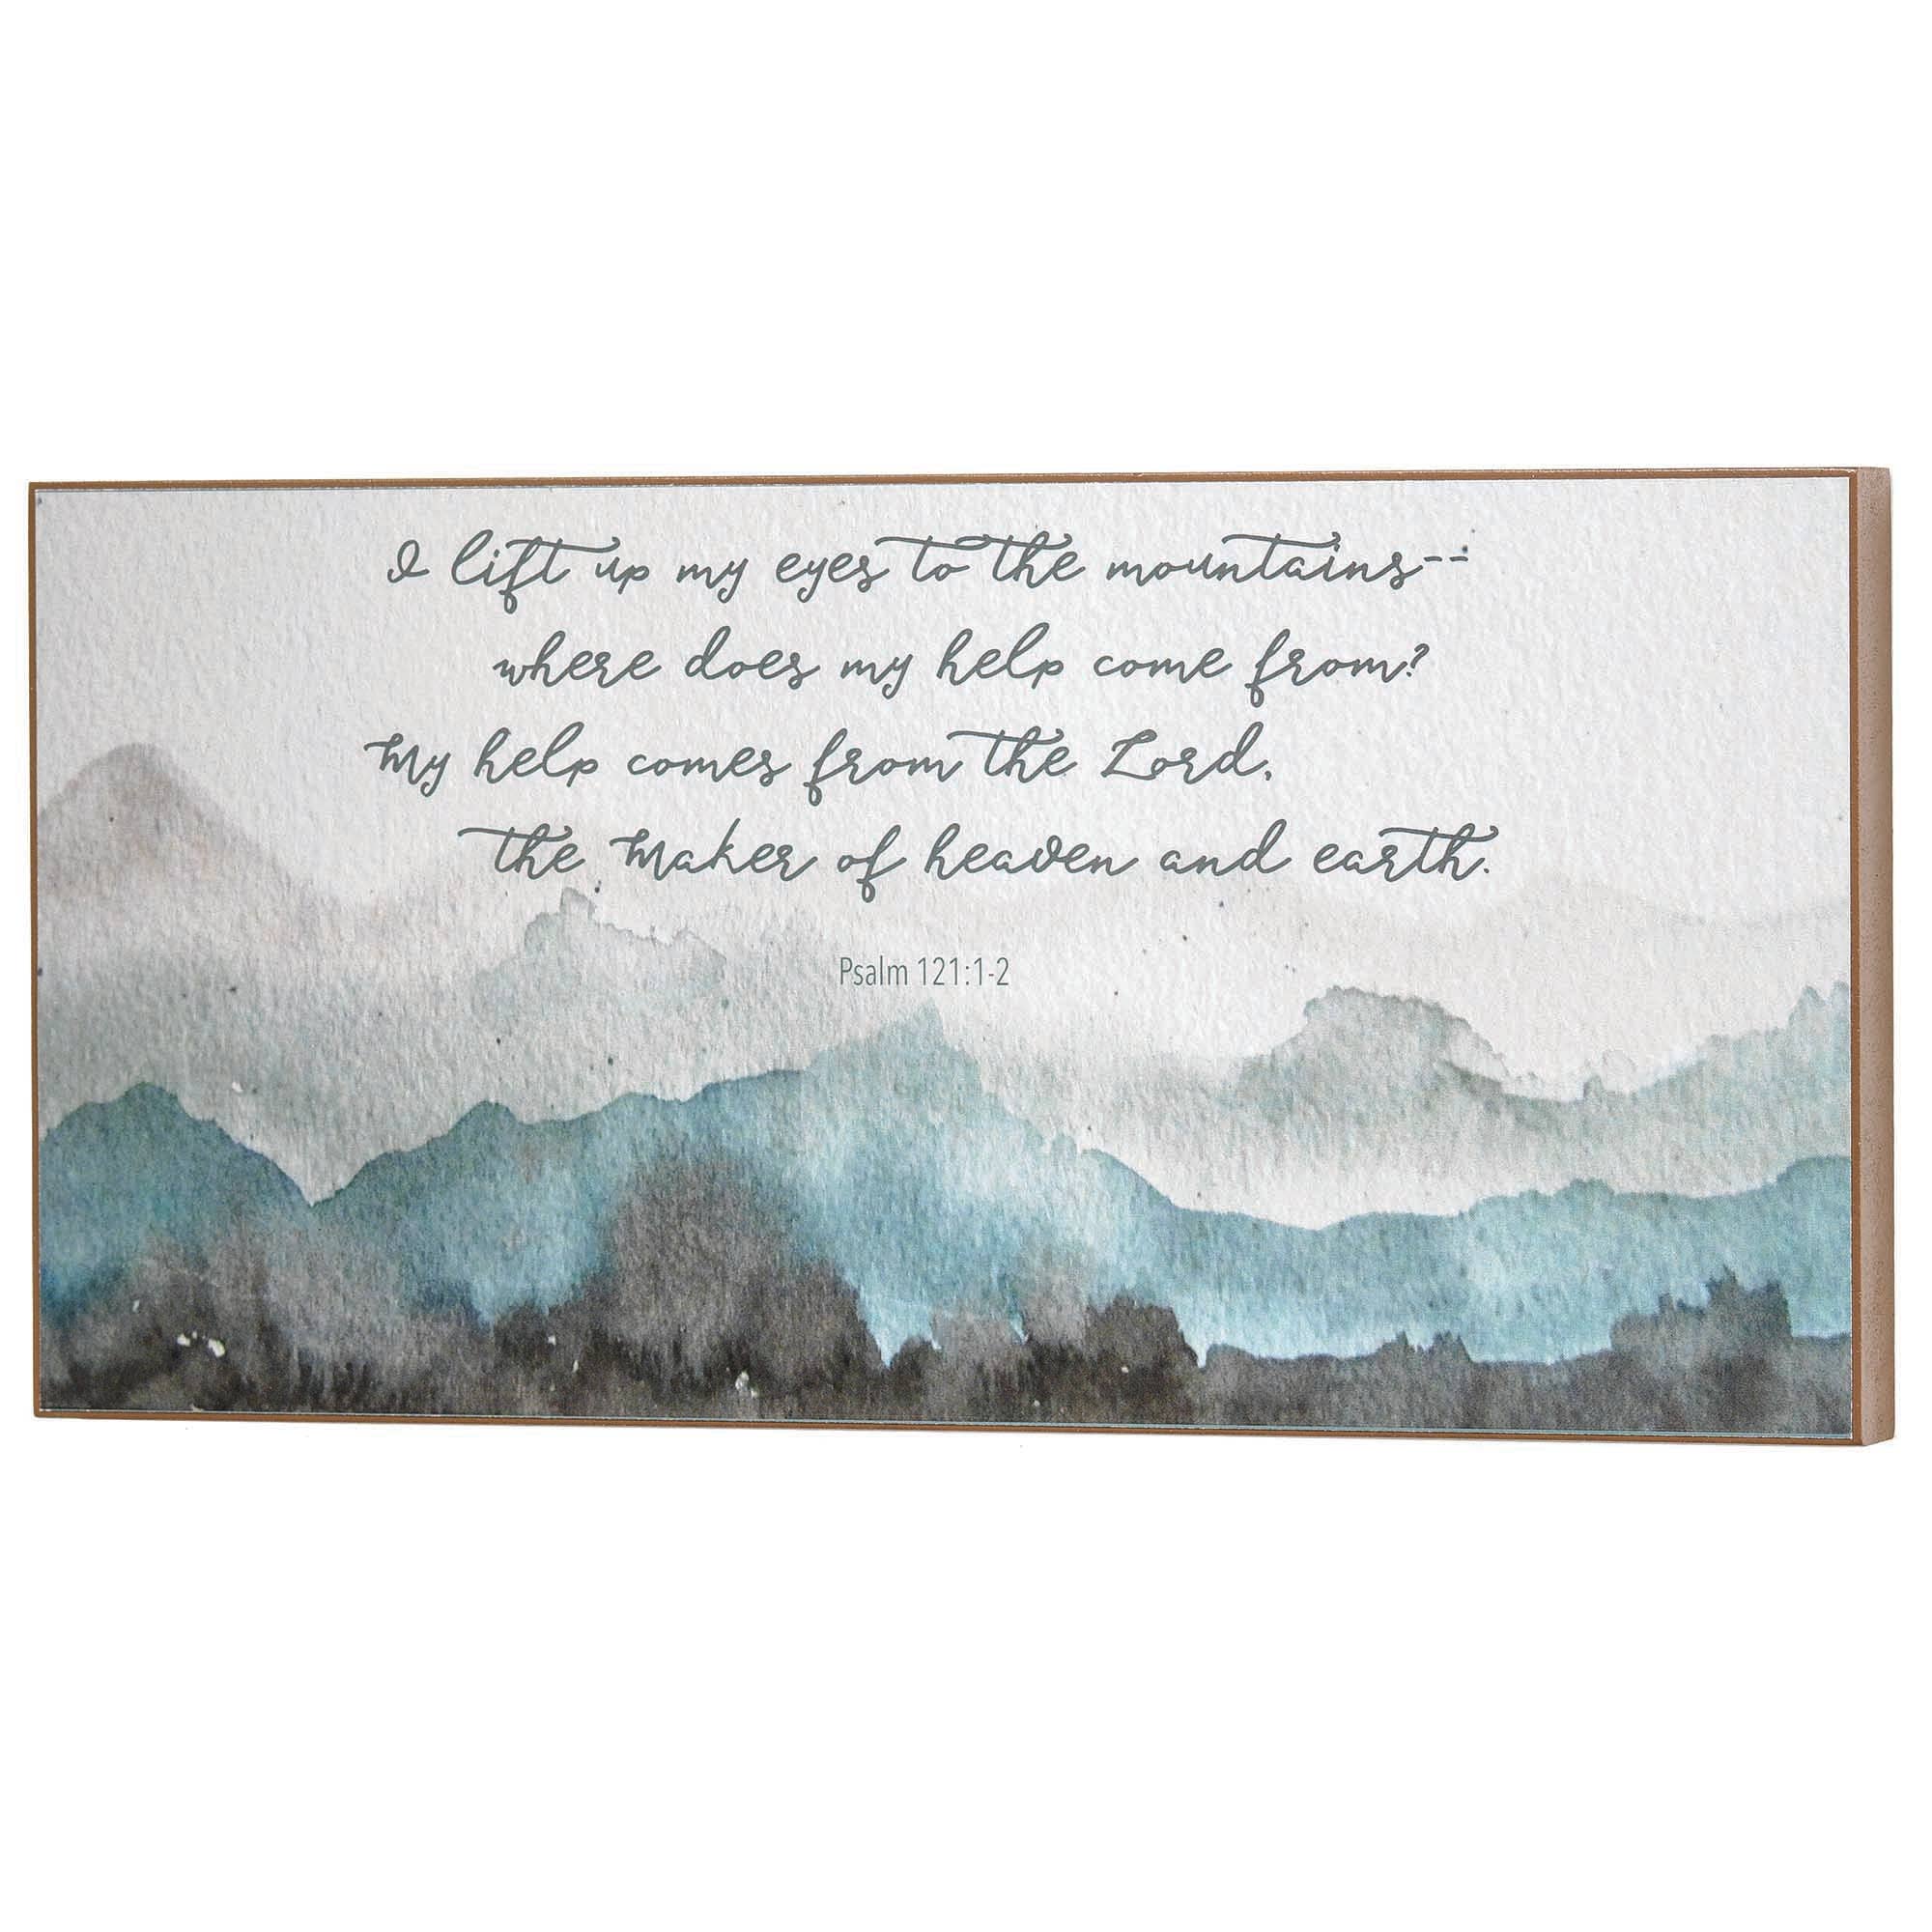 I lift up my eyes to the mountains--
where does my help come from?
My help comes from the Lord,
the Maker of heaven and earth.
Psalm 121:1-2